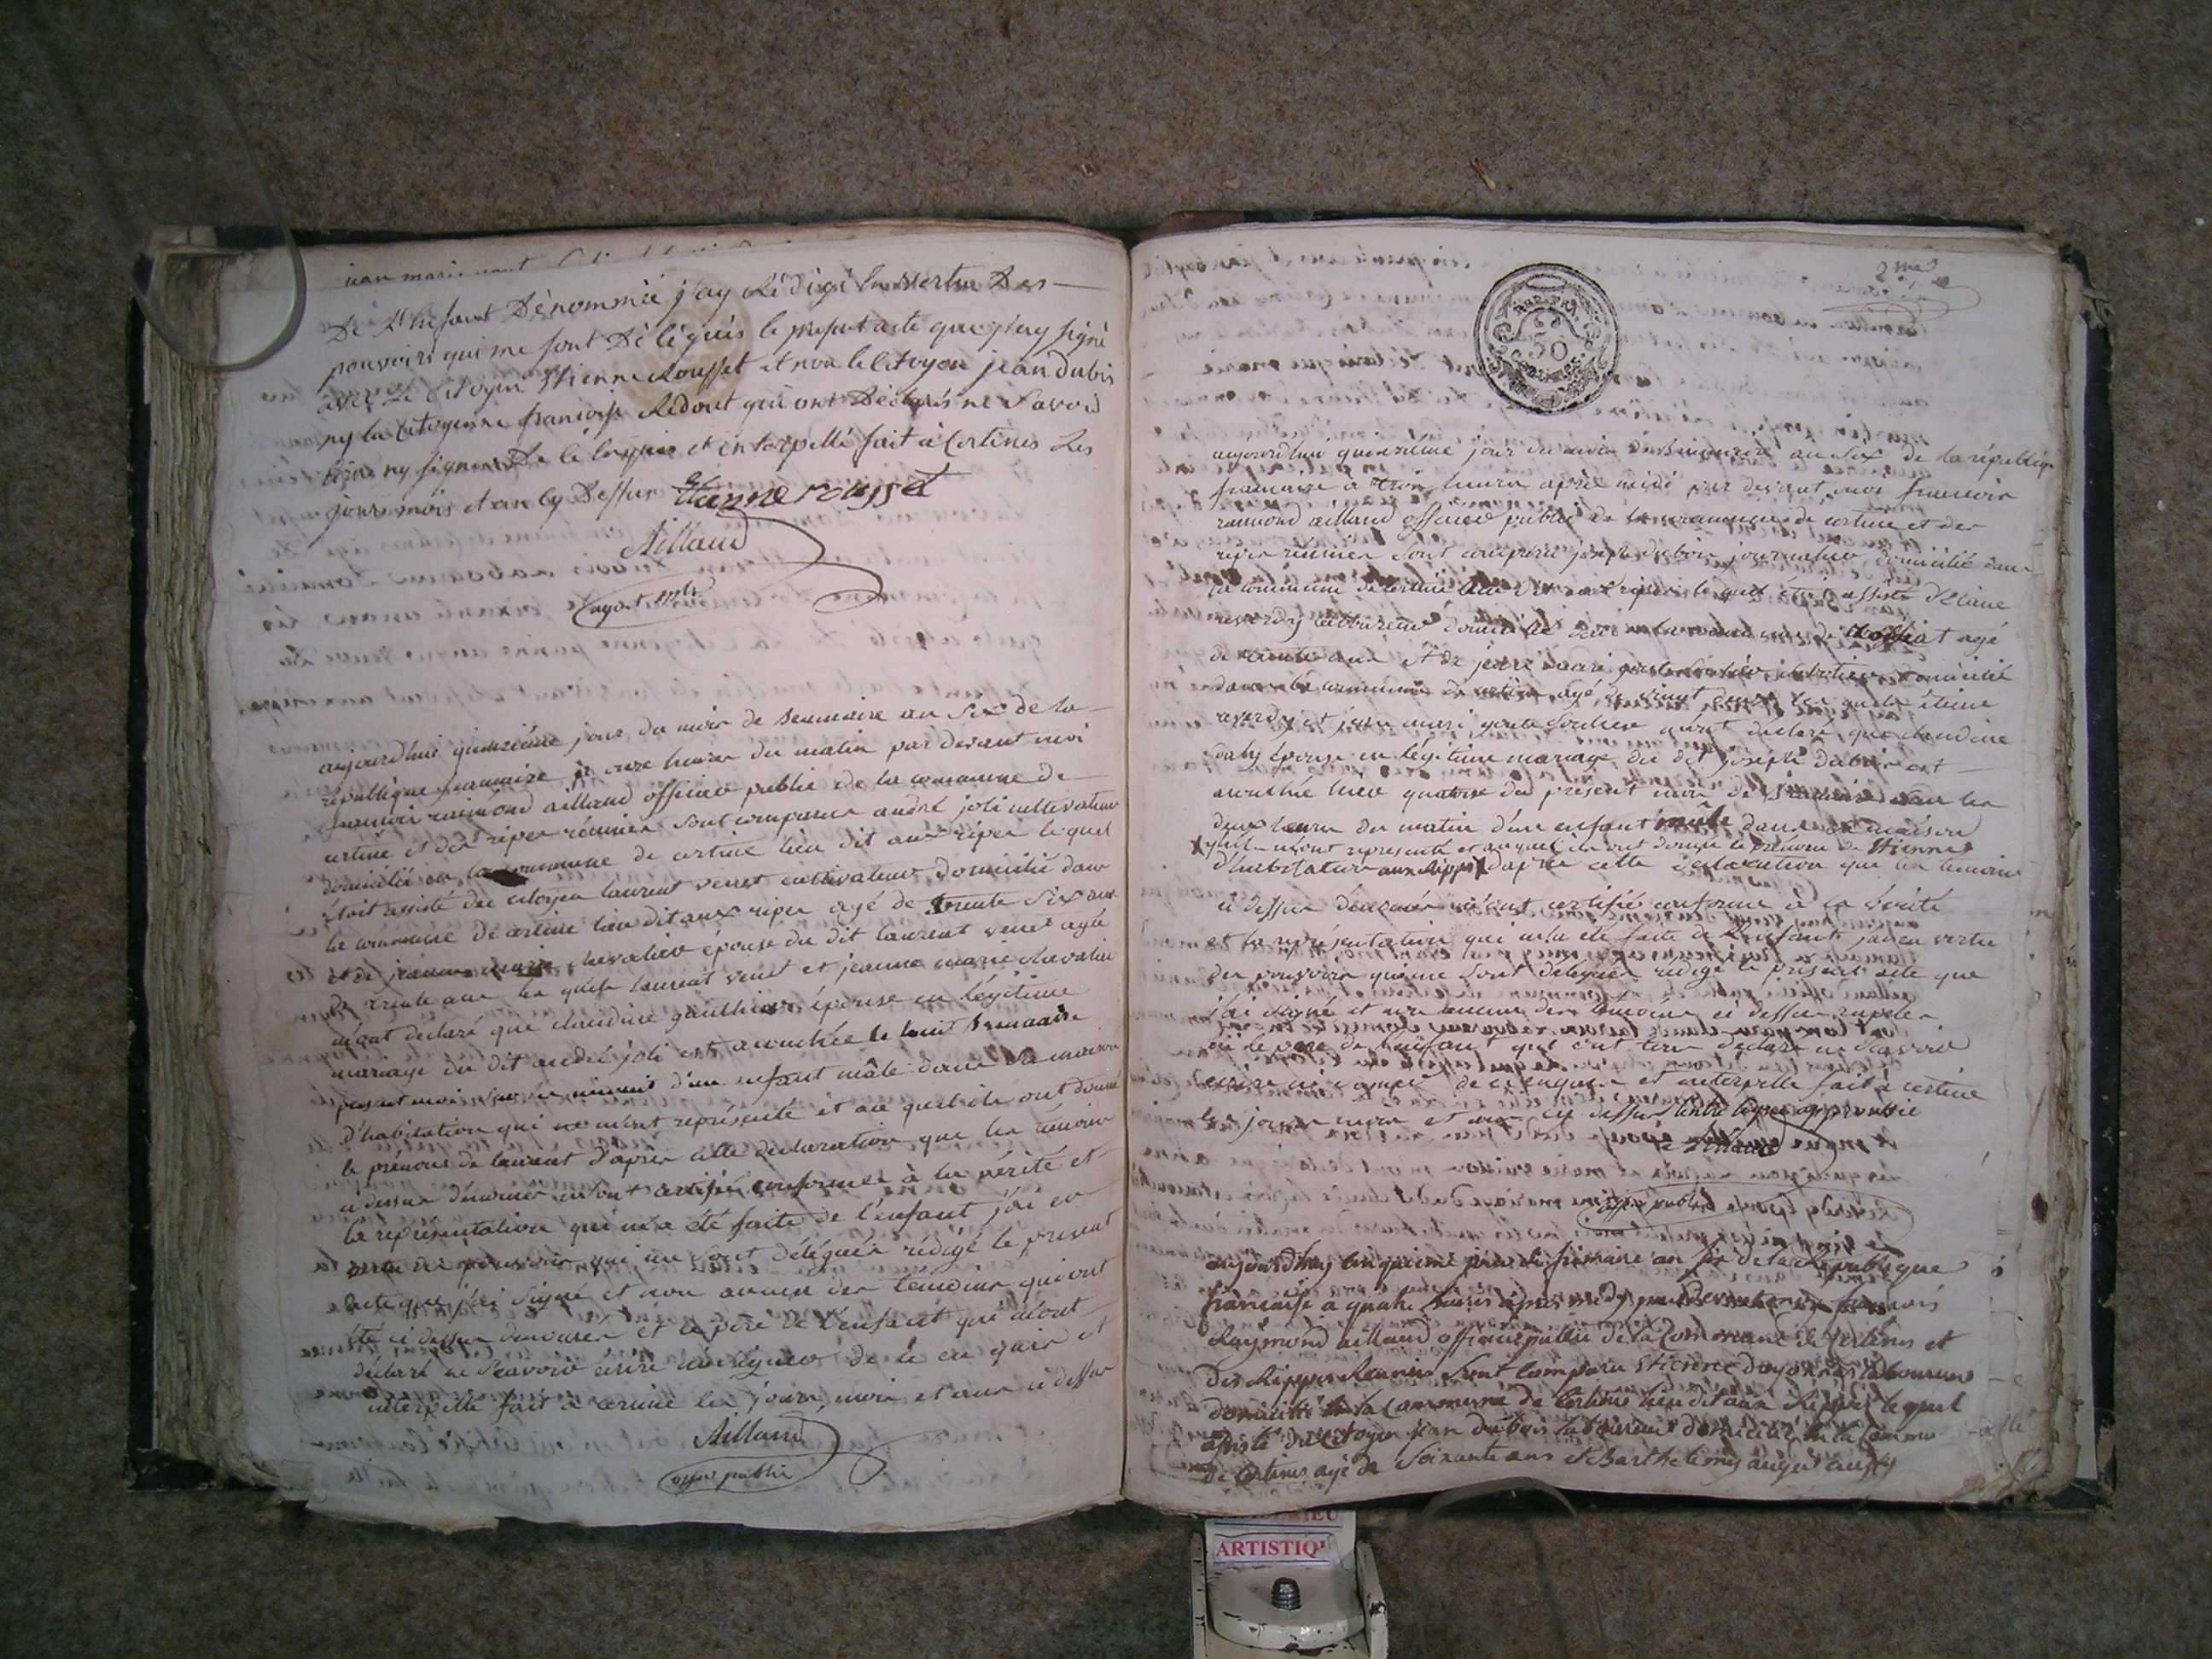 De L'Enfant Dénommée j'ay Rédigé En vertu Des
pouvoirs qui me sont Délégués le présent acte que j'ay signé
avec le Citoyen Etienne Rousset et non le Citoyen jean Dubois
ny la Citoyenne françoise Redout qui ont Déclarés ne Savoir
Ecrire ny signer De ce Enquis et interpellé fait à Certines Les
jours mois et an cy Dessus Etienne rousset
Aillaud
agent mpl
aujourd'hui quinzième jour du mois de brumaire an six de la
république francaise à onze heures du matin par devant moi
francois raimond aillaud officier public de la commune de
certine et des ripes réunies sont comparus andré joli cultivateur
domicilié en la commune de certine lieu dit aux ripes lequel
étoit assisté du citoyen laurent venet cultivateur domicilié dans
la commune de certine lieu dit aux ripes agé de trente six ans
et de jeanne marie chevalier épouse du dit laurent venet agée
de trente ans les quels laurent venet et jeanne marie chevalier
m'ont déclaré que claudine gauthier épouse en légitime
mariage du dit andré joli est accouchée le huit brumaire
présent mois sur le minuit d'un enfant mâle dans sa maison
d'habitation qui m'ont représenté et au quel ils ont donné
le prénom de laurent d'après cette declaration que les témoins
ci dessus dénomés m'ont certifié conforme à la vérité et
la représentation qui m'a été faite de l'enfant j'ai en
vertu des pouvoirs qui me sont délégués rédigé le present
acte que j'ai signé et non aucun des témoins qui ont
été ci dessus denomés et le père de l'enfant qui m'ont
déclaré ne scavoir écrire ni signer de ce en quis et
interpellé fait à certine les jours, mois et an ci dessus
Aillaud
offer public
2me
50
aujourd'hui quinzième jour du mois de brumaire an six de la république
francaise à trois heures après midi par devant moi francois
raimond aillaud officier public de la commune de certine et des
ripes réunies sont comparus joseph dubois journalier domicilié dans
la commune de certine lieu dit aux ripes le quel étoit assisté d'étiene
reverdy laboureur domicilié dans la commune de agé
de trente ans et de jean mari domicilié
dans la commune de certine agé de vingt deux les quels étiene
reverdy et jean mari m'ont declaré que claudine
épouse en légitime mariage du dit joseph dubois est
accouchée hier quatorze du présent mois de brumaire sur les
deux heures du matin d'un enfant mâle dans sa maison
qu'ils m'ont representé et auquel ils ont donné le prénom de Etienne
d'habitation aux Rippes d'après cette déclaration que les temoins
ci dessus dénomés m'ont certifié conforme à la vérité
et la représentation qui m'a été faite de l'enfant j'ai en vertu
des pouvoirs qui me sont délégués rédigé le présent acte que
j'ai signé et non aucun des temoins ci dessus rapelés
ni le père de l'enfant qui ont tous déclaré ne scavoir
écrire ni signer de ce enquis et interpellé fait à certine
les jours mois et an cy dessus l'entre ligne approuvée
Aillaud
offer public
aujourd'huy cinquieme jour de frimaire an six de la République
française à quatre heures après midy par Devant moy francois
Raymond aillaud officier public de la Commune de Certines et
Des Rippes Reunies Sont Comparu Etienne Dagonnas laboureur
domicilié En la Commune de Certines lieu dit aux Rippes lequel
assisté du Citoyen jean Dubois laboureur domicilié En la Commune
De Certines agé de Soixante ans et Barthelemy